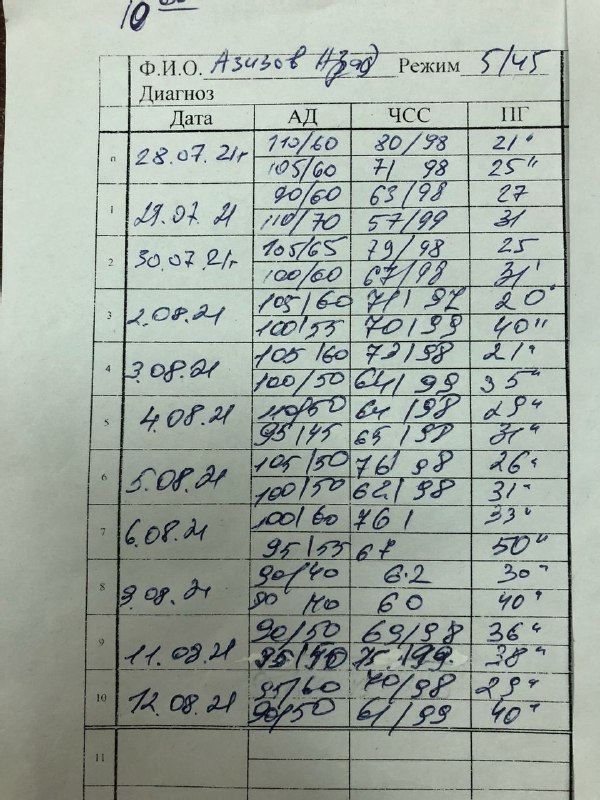 10 00
Ф.И.О. Азизов Режим 5/45
Диагноз
Дата АД ЧСС ПГ
п 28.07.21г 110/60 80/98 21"
105/60 71 98 25"
1 29.07.21 90/60 63/98 27
110/70 57/99 31
2 30.07.21г 105/65 79/98 25
100/60 67/98 31'
3 2.08.21 105/60 71/97 20"
100/55 70/99 40"
4 3.08.21 105/60 72/98 21"
100/50 64/99 35"
5 4.08.21 110/60 64/98 29"
95/45 65/98 31"
6 5.08.21 105/50 76/98 26"
100/50 62/98 31"
7 6.08.21 100/60 76/ 33"
95/55 67 50"
8 9.08.21 90/40 62 30"
90 40 60 40"
9 11.08.21 90/50 69/98 36"
75/99 38"
10 12.08.21 95/60 70/98 29"
90/50 61/99 40"
11